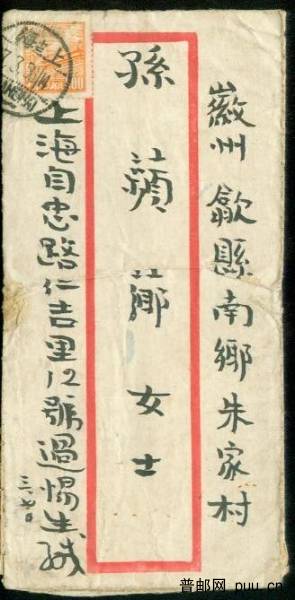 徽州歙縣南鄉朱家村
孫蘋薌女士
上海自忠路仁吉里12號過惕生緘
三.七日
上海
普邮网 puu.cn